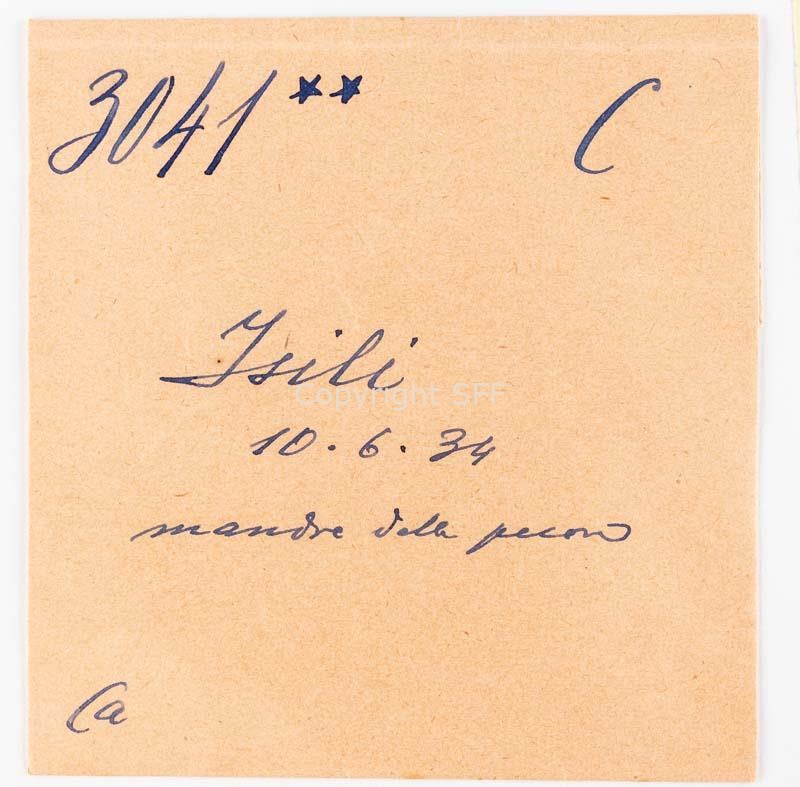 3041** C
Isili
Copyright SFF
10.6.34
mandre delle pecore
Ca